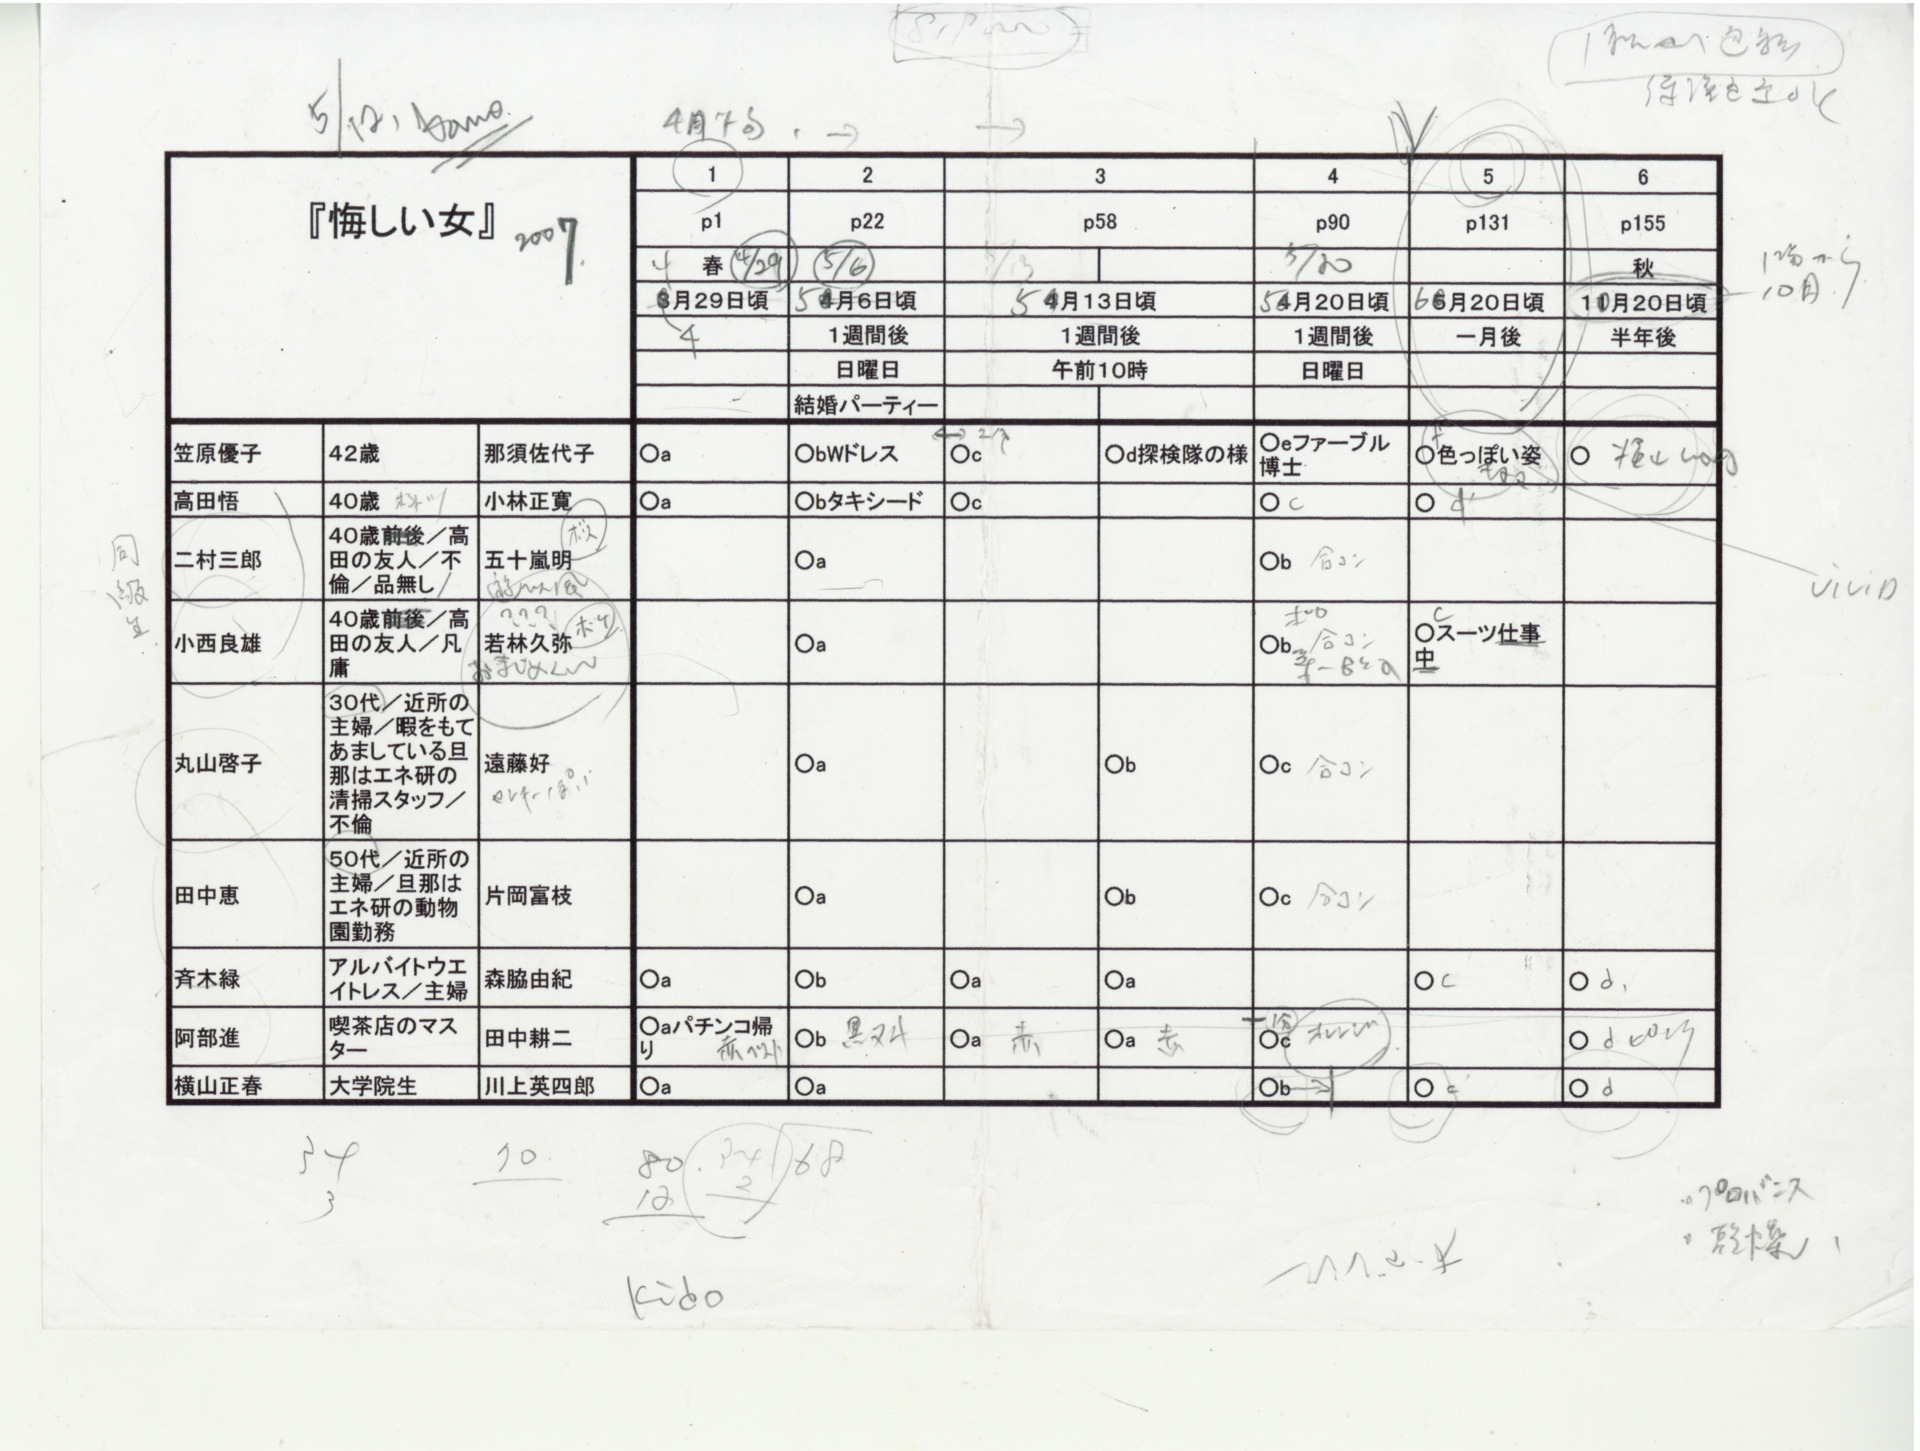 5/12,
4月
『悔しい女』
2007
1 2 3 4 5 6
p1 p22 p58 p90 p131 p155
春 4/29 5/6 5/13 5/20 秋
月29日頃 5 月6日頃 5 月13日頃 5 月20日頃 6 月20日頃 月20日頃
10月
4 1週間後 1週間後 1週間後 一月後 半年後
日曜日 午前10時 日曜日
結婚パーティー
笠原優子 42歳 那須佐代子 ○a ○bWドレス ○c ○d探検隊の様 ○eファーブル
博士 ○色っぽい姿 ○
高田悟 40歳 小林正寛 ○a ○bタキシード ○c ○ c ○ d
二村三郎 40歳前後／高
田の友人／不
倫／品無し 五十嵐明 ○a ○b 合コン
小西良雄 40歳前後／高
田の友人／凡
庸 若林久弥 ○a ○b 合コン c
○スーツ仕事
中
同級生
丸山啓子 30代／近所の
主婦／暇をもて
あましている旦
那はエネ研の
清掃スタッフ／
不倫 遠藤好 ○a ○b ○c 合コン
田中恵 50代／近所の
主婦／旦那は
エネ研の動物
園勤務 片岡富枝 ○a ○b ○c 合コン
斉木緑 アルバイトウエ
イトレス／主婦 森脇由紀 ○a ○b ○a ○a ○ c ○ d
阿部進 喫茶店のマス
ター 田中耕二 ○aパチンコ帰
り 赤ベスト ○b ○a 赤 ○a 赤 ○c オレンジ ○ d ピンク
横山正春 大学院生 川上英四郎 ○a ○a ○b ○ c ○ d
ViViD
34 10 80 34 68
3 12 2
プロバンス
乾燥
Kido